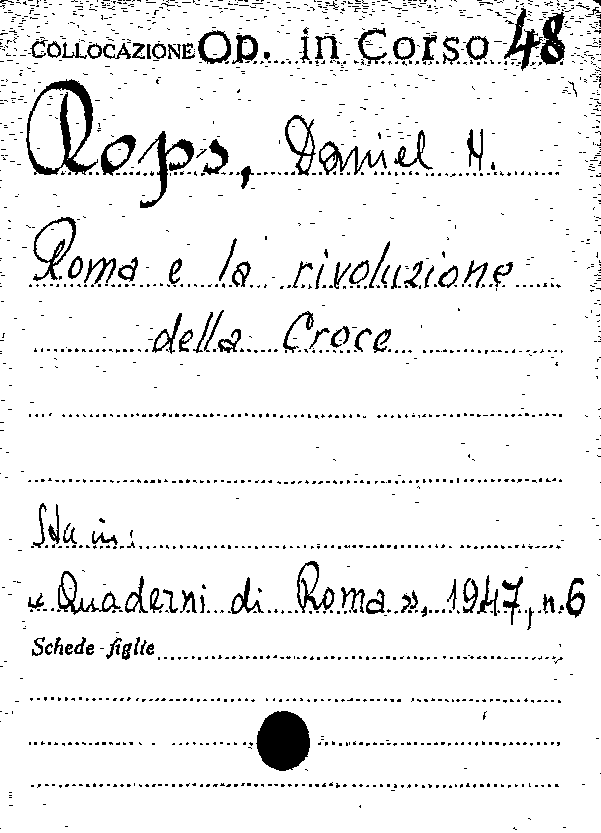 COLLOCAZIONE Op. in Corso 48
Rops, Daniel H.
Roma e la rivoluzione
della Croce
Sta in:
« Quaderni di Roma », 1947, n.6
Schede-figlie